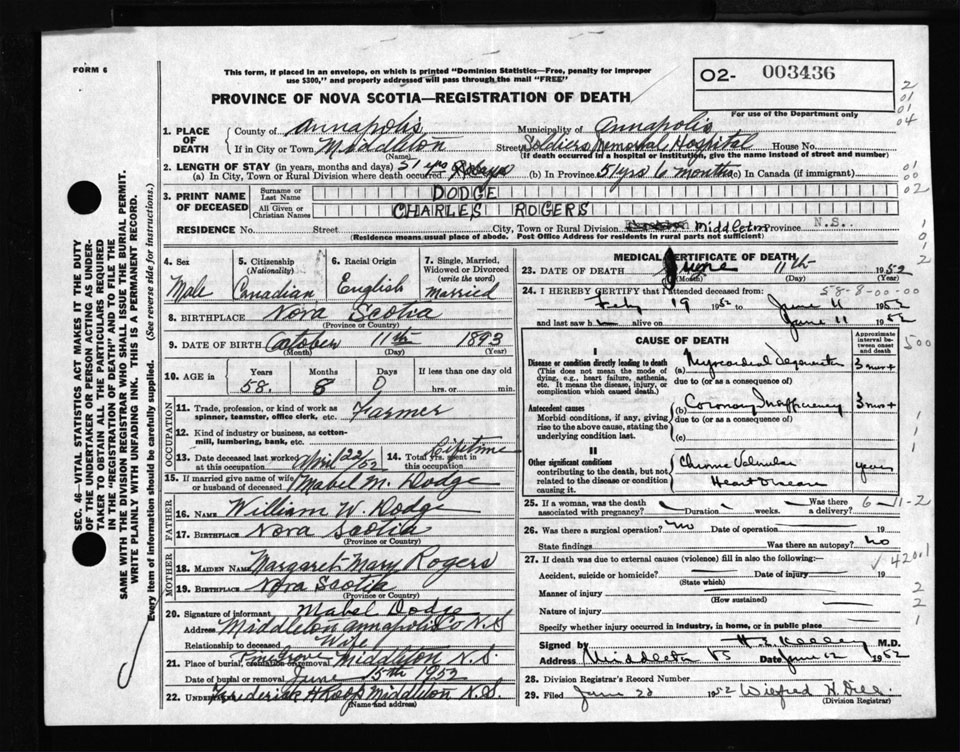 FORM 6
This form, if placed in an envelope, on which is printed "Dominion Statistics—Free, penalty for improper
use $300," and properly addressed will pass through the mail "FREE"
O2- 003436
PROVINCE OF NOVA SCOTIA—REGISTRATION OF DEATH
For use of the Department only
1. PLACE OF DEATH
County of Annapolis Municipality of Annapolis
If in City or Town Middleton (Name) Street Soldiers Memorial Hospital House No.
(If death occurred in a hospital or institution, give the name instead of street and number)
2. LENGTH OF STAY (in years, months and days) 51 yrs
(a) In City, Town or Rural Division where death occurred (b) In Province 51 yrs 6 months (c) In Canada (if immigrant)
3. PRINT NAME OF DECEASED
Surname or Last Name DODGE
All Given or Christian Names CHARLES ROGERS
RESIDENCE No. Street City, Town or Rural Division Middleton Province N.S.
(Residence means usual place of abode. Post Office Address for residents in rural parts not sufficient)
4. Sex Male
5. Citizenship (Nationality) Canadian
6. Racial Origin English
7. Single, Married, Widowed or Divorced (write the word) Married
8. BIRTHPLACE Nova Scotia
(Province or Country)
9. DATE OF BIRTH October 11th 1893
(Month) (Day) (Year)
10. AGE in Years Months Days If less than one day old
58 8 0 hrs. or min.
OCCUPATION
11. Trade, profession, or kind of work as spinner, teamster, office clerk, etc. Farmer
12. Kind of industry or business, as cotton-mill, lumbering, bank, etc.
13. Date deceased last worked at this occupation April 22/52
14. Total yrs. spent in this occupation Lifetime
15. If married give name of wife or husband of deceased Mabel M. Dodge
FATHER
16. NAME William W. Dodge
17. BIRTHPLACE Nova Scotia
(Province or Country)
MOTHER
18. MAIDEN NAME Margaret Mary Rogers
19. BIRTHPLACE Nova Scotia
(Province or Country)
20. Signature of informant Mabel Dodge
Address Middleton Annapolis Co N.S
Relationship to deceased Wife
21. Place of burial, cremation or removal Pinegrove Middleton N.S.
Date of burial or removal June 15th 1952
22. Undertaker Frederick H Roop Middleton N.S.
(Name and address)
MEDICAL CERTIFICATE OF DEATH
23. DATE OF DEATH June 11th 1952
(Month) (Day) (Year)
24. I HEREBY CERTIFY that I attended deceased from: 58-8-00-00
Feby 19 1952 to June 11 1952
and last saw h alive on June 11 1952
CAUSE OF DEATH
Approximate interval between onset and death
I
Disease or condition directly leading to death
(This does not mean the mode of dying, e.g., heart failure, asthenia, etc. It means the disease, injury, or complication which caused death.)
(a) Myocardial 3 mos +
due to (or as a consequence of)
Antecedent causes
Morbid conditions, if any, giving rise to the above cause, stating the underlying condition last.
(b) Coronary Insufficiency 3 mos +
due to (or as a consequence of)
(c)
II
Other significant conditions
contributing to the death, but not related to the disease or condition causing it.
Chronic Valvular
Heart Disease years
25. If a woman, was the death associated with pregnancy? Duration weeks. Was there a delivery? 6-11-2
26. Was there a surgical operation? No Date of operation 19
State findings Was there an autopsy? No
27. If death was due to external causes (violence) fill in also the following:— 4201
Accident, suicide or homicide? Date of injury 19
(State which)
Manner of injury
(How sustained)
Nature of injury
Specify whether injury occurred in industry, in home, or in public place
Signed by H. E. Kelley M.D.
Address Middleton NS Date June 12 1952
28. Division Registrar's Record Number
29. Filed June 20 1952 Wilfred H. Dill.
(Division Registrar)
SEC. 46—VITAL STATISTICS ACT MAKES IT THE DUTY
OF THE UNDERTAKER OR PERSON ACTING AS UNDER-
TAKER TO OBTAIN ALL THE PARTICULARS REQUIRED
IN THE "REGISTRATION OF DEATH" AND TO FILE THE
SAME WITH THE DIVISION REGISTRAR WHO SHALL ISSUE THE BURIAL PERMIT.
WRITE PLAINLY WITH UNFADING INK. THIS IS A PERMANENT RECORD.
Every item of information should be carefully supplied. (See reverse side for instructions.)